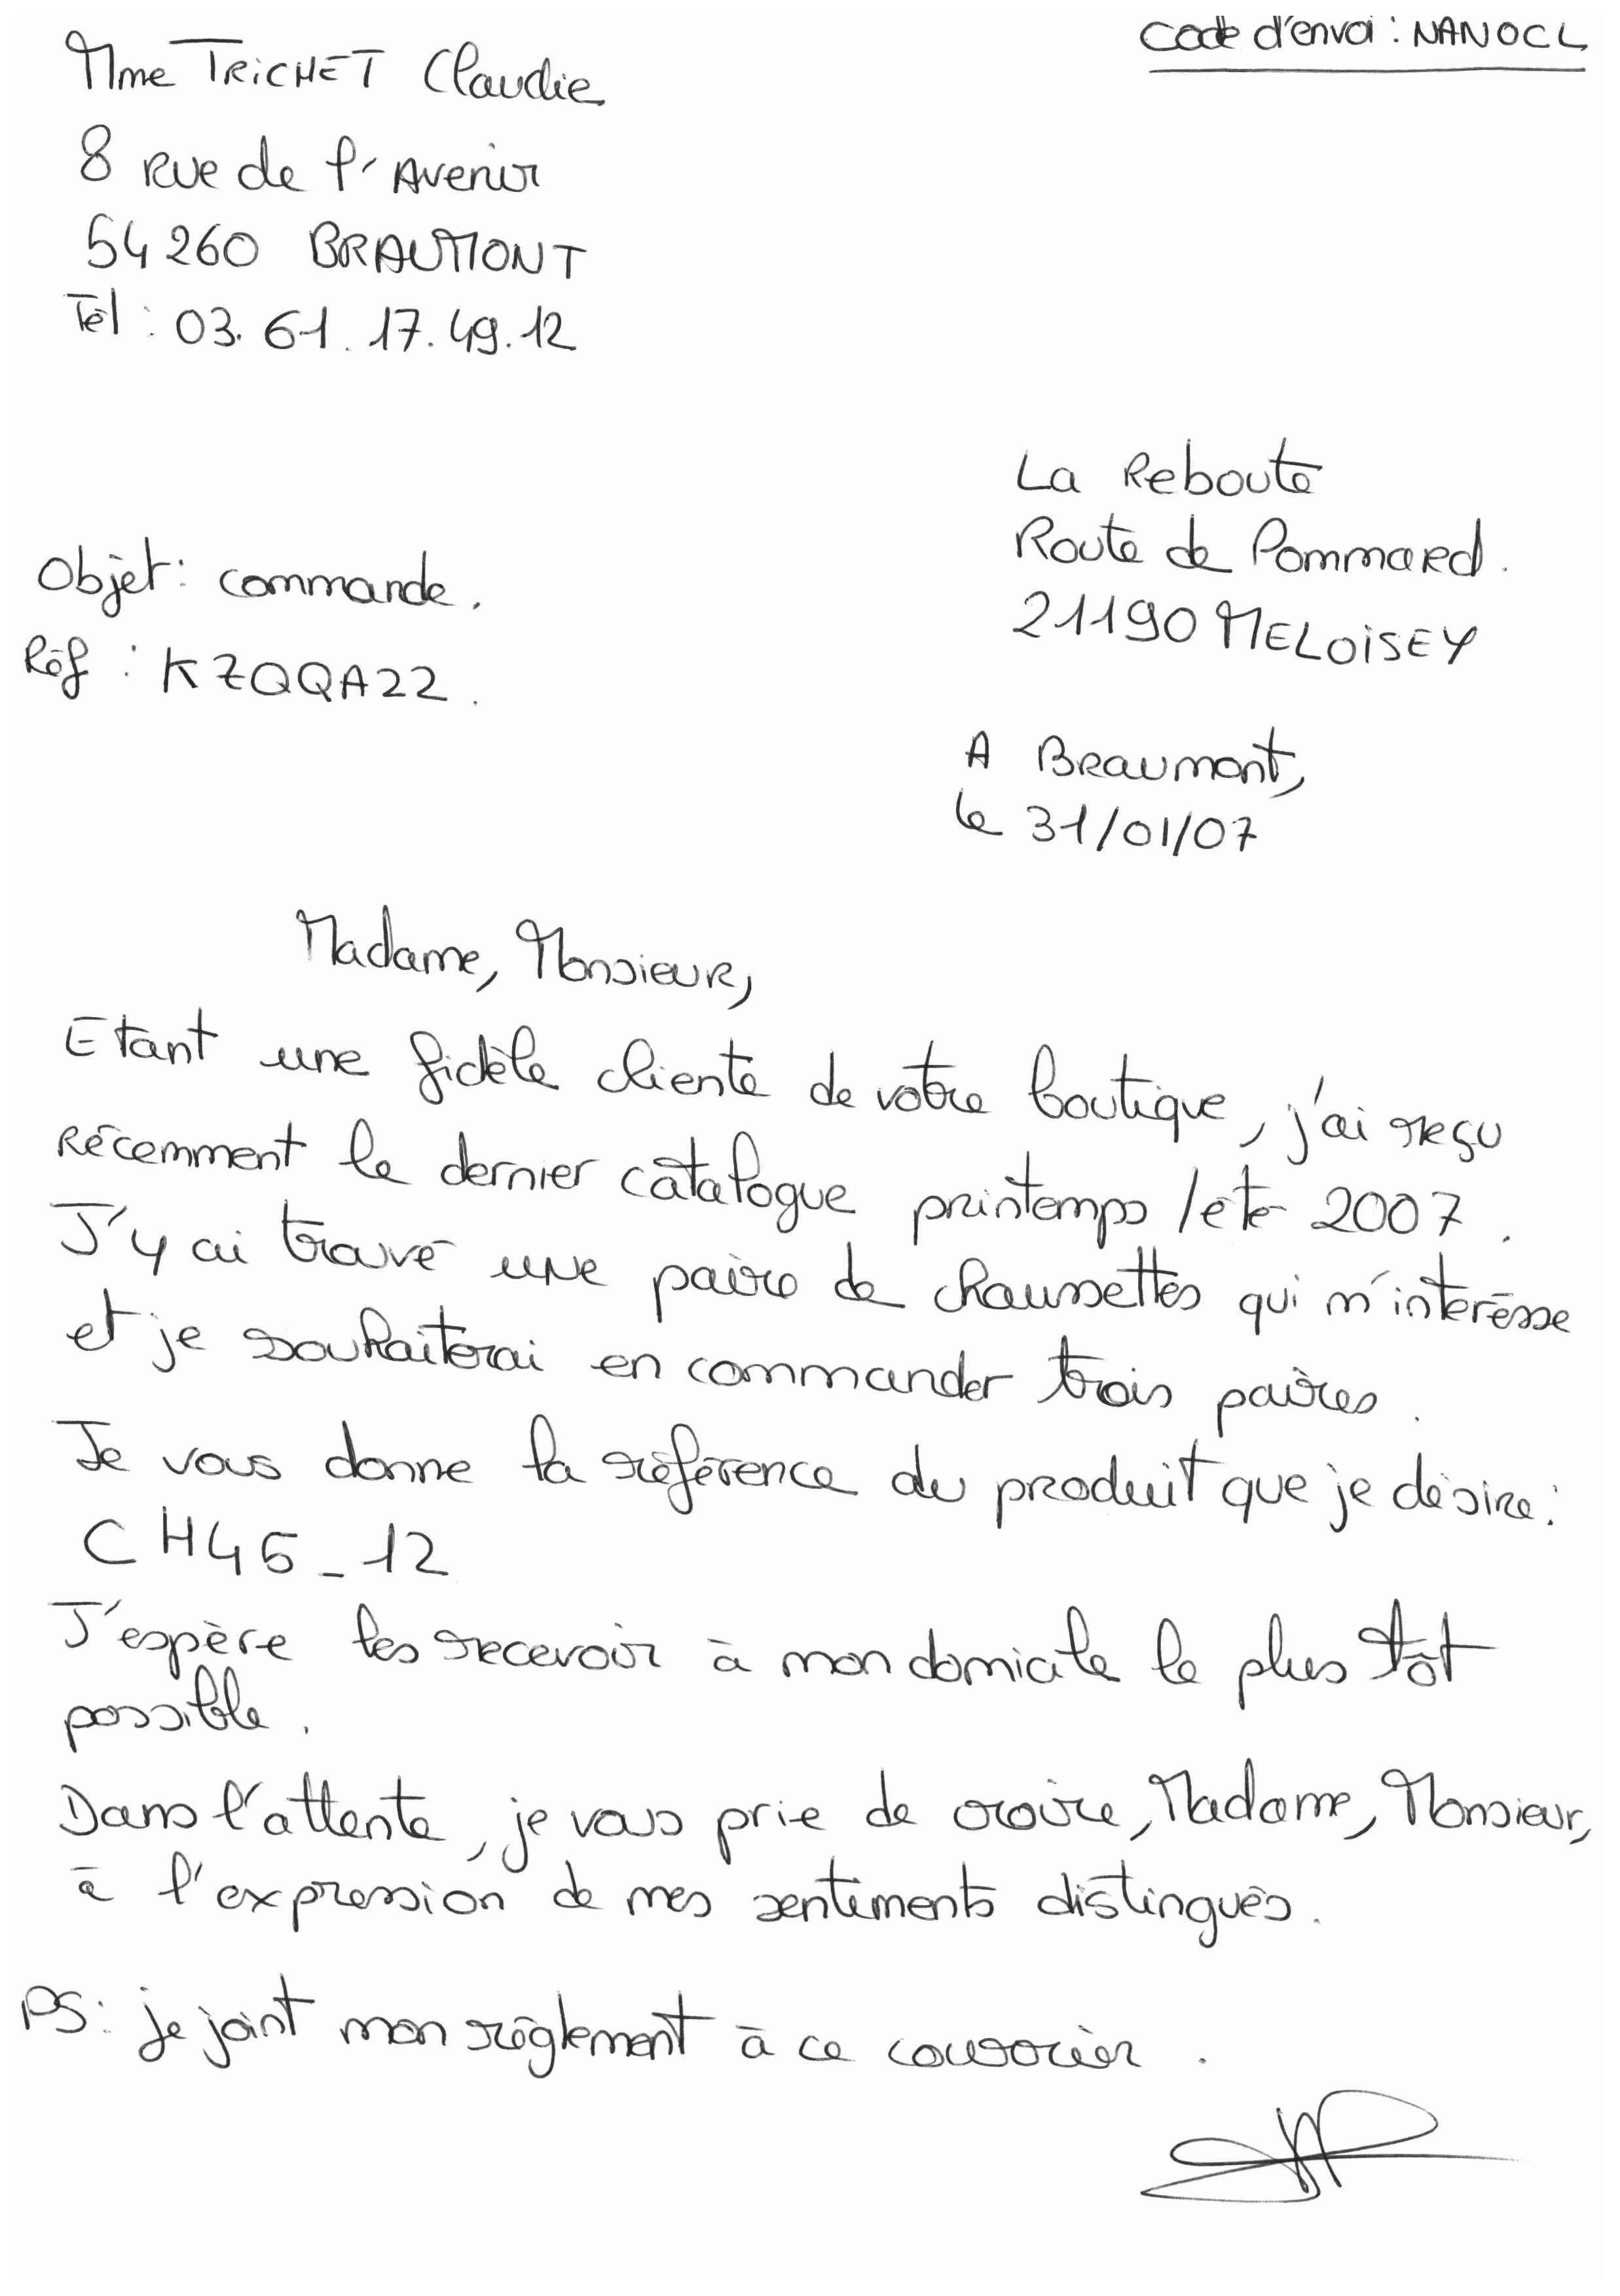 Code d'envoi : NANOCL
Mme TRICHET Claudie
8 rue de l'Avenir
54260 BRAUMONT
Tél : 03.61.17.49.12
La Reboute
Route de Pommard.
21190 MELOISEY
Objet : commande.
Réf : KZQQA22.
A Braumont,
le 31/01/07
Madame, Monsieur,
Etant une fidèle cliente de votre boutique, j'ai reçu
récemment le dernier catalogue printemps/été 2007.
J'y ai trouvé une paire de chaussettes qui m'intéresse
et je souhaiterai en commander trois paires.
Je vous donne la référence du produit que je désire :
CH45_12
J'espère les recevoir à mon domicile le plus tôt
possible.
Dans l'attente, je vous prie de croire, Madame, Monsieur,
à l'expression de mes sentiments distingués.
PS : je joint mon règlement à ce courrier.